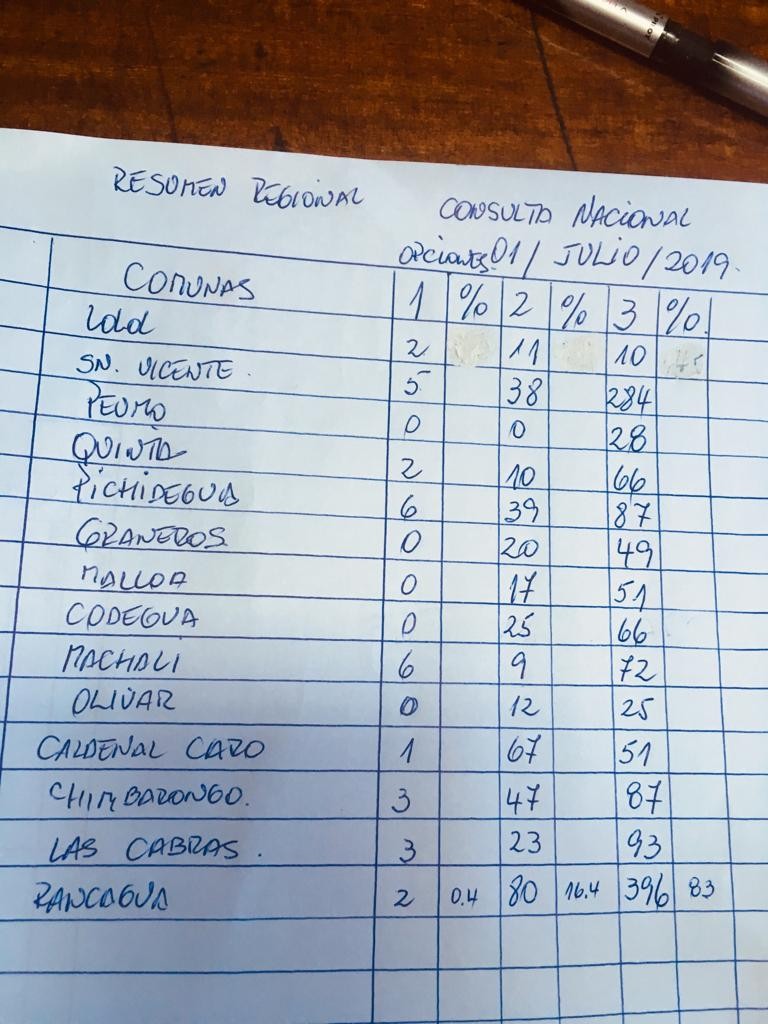 RESUMEN REGIONAL CONSULTA NACIONAL
OPCIONES 01 / JULIO / 2019.
COMUNAS 1 % 2 % 3 %.
Lolol 2 11 10
SN. VICENTE. 5 38 284
PEUMO 0 0 28
QUINTA 2 10 66
PICHIDEGUA 6 39 87
GRANEROS 0 20 49
MALLOA 0 17 51
CODEGUA 0 25 66
MACHALI 6 9 72
OLIVAR 0 12 25
CALDENAL CARO 1 67 51
CHIMBARONGO. 3 47 87
LAS CABRAS. 3 23 93
RANCAGUA 2 0.4 80 16.4 396 83